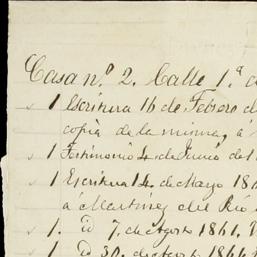 Casa nº 2. Calle 1.ª d
1 Escritura 16 de Febrero d
copia de la misma, á
1 Testimonio 4 de Junio del
1 Escritura 14 de Mayo 18
a Martinez del Rio
1. id 7. de Agosto 1861.
1. id 30. de Agosto 1861